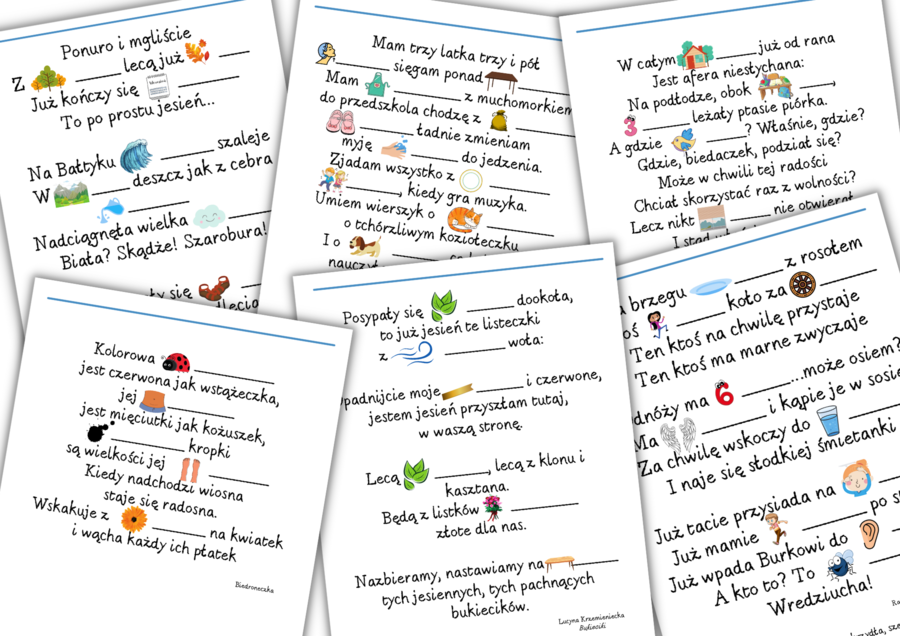 Ponuro i mgliście
Z ______ lecą już ______
Już kończy się ______
To po prostu jesień...
Na Bałtyku ______ szaleje
W ______ deszcz jak z cebra
______
Nadciągnęła wielka ______
Biała? Skądże! Szarobura!
się ______
Mam trzy latka trzy i pół
______ sięgam ponad ______
Mam ______ z muchomorkiem
do przedszkola chodzę z ______
______ ładnie zmieniam
myję ______ do jedzenia.
Zjadam wszystko z ______
______, kiedy gra muzyka.
Umiem wierszyk o ______
o tchórzliwym koziołeczku
I o ______
W całym ______ już od rana
Jest afera niesłychana:
Na podłodze, obok ______,
3 ______ leżały ptasie piórka.
A gdzie ______? Właśnie, gdzie?
Gdzie, biedaczek, podział się?
Może w chwili tej radości
Chciał skorzystać raz z wolności?
Lecz nikt ______ nie otwierał
Kolorowa ______
jest czerwona jak wstążeczka,
jej ______
jest mięciutki jak kożuszek,
______ kropki
są wielkości jej ______
Kiedy nadchodzi wiosna
staje się radosna.
Wskakuje z ______ na kwiatek
i wącha każdy ich płatek
Biedroneczka
Posypały się ______ dookoła,
to już jesień te listeczki
z ______ woła:
opadnijcie moje ______ i czerwone,
jestem jesień przyszłam tutaj,
w waszą stronę.
Lecą ______, lecą z klonu i
kasztana.
Będą z listków ______
złote dla nas.
Nazbieramy, nastawiamy na ______
tych jesiennych, tych pachnących
bukiecików.
Lucyna Krzemieniecka
Bukieciki
brzegu ______ z rosołem
______ koło za ______
Ten ktoś na chwilę przystaje
Ten ktoś ma marne zwyczaje
nóży ma 6 ______...może osiem?
Ma ______ i kąpie je w sosie
Za chwilę wskoczy do ______
I naje się słodkiej śmietanki
Już tacie przysiada na ______
Już mamie ______ po
Już wpada Burkowi do ______
A kto to? To ______
Wredziucha!